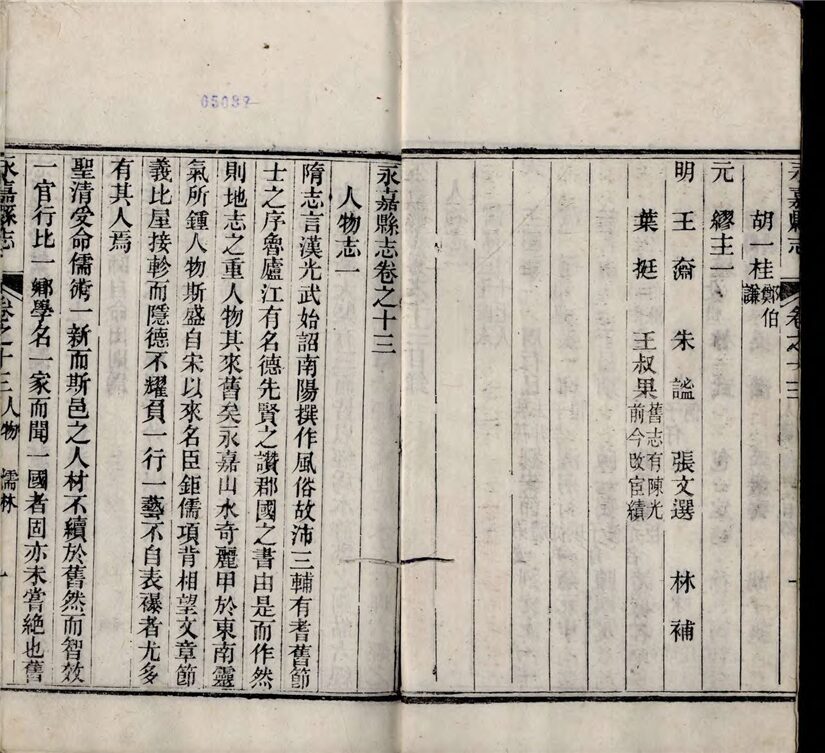 永嘉縣志
卷之十三
胡一桂 鄭伯謙
元 繆主一
明 王奫 朱謐 張文選 林補
葉挺 王叔果 舊志有陳光前今改宦績
05087
永嘉縣志卷之十三
人物志一
隋志言漢光武始詔南陽撰作風俗故沛三輔有耆舊節
士之序魯廬江有名德先賢之讚郡國之書由是而作然
則地志之重人物其來舊矣永嘉山水奇麗甲於東南靈
氣所鍾人物斯盛自宋以來名臣鉅儒項背相望文章節
義比屋接軫而隱德不耀負一行一藝不自表襮者尤多
有其人焉
聖清受命儒術一新而斯邑之人材不續於舊然而智效
一官行比一鄉學名一家而聞一國者固亦未嘗絶也舊
永嘉縣志 卷之十三 人物 儒林 一